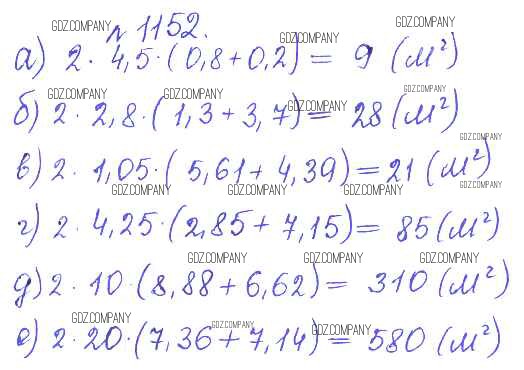 GDZ.COMPANY № 1152. GDZ.COMPANY
GDZ.COMPANY
а) 2 · 4,5 · (0,8 + 0,2) = 9 (м²)
GDZ.COMPANY GDZ.COMPANY GDZ.COMPANY GDZ.COMPANY
б) 2 · 2,8 · (1,3 + 3,7) = 28 (м²)
GDZ.COMPANY
в) 2 · 1,05 · (5,61 + 4,39) = 21 (м²)
GDZ.COMPANY GDZ.COMPANY GDZ.COMPANY GDZ.COMPANY
г) 2 · 4,25 · (2,85 + 7,15) = 85 (м²)
GDZ.COMPANY GDZ.COMPANY GDZ.COMPANY
д) 2 · 10 · (8,88 + 6,62) = 310 (м²)
GDZ.COMPANY GDZ.COMPANY GDZ.COMPANY
е) 2 · 20 · (7,36 + 7,14) = 580 (м²)